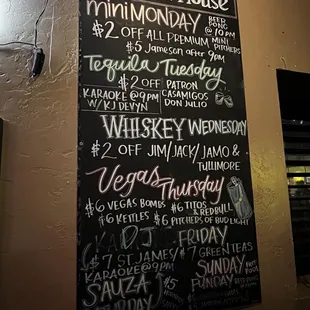 House
mini MONDAY BEER PONG @ 10 PM
$2 OFF ALL PREMIUM MINI PITCHERS
$5 Jameson after 9pm
Tequila Tuesday
$2 OFF PATRON
KARAOKE @ 9PM CASAMIGOS
W/ KJ DEVYN DON JULIO
WHISKEY WEDNESDAY
$2 OFF JIM/JACK/JAMO &
TULLIMORE
Vegas Thursday
$6 VEGAS BOMBS $6 TITOS & REDBULL
$6 KETTLES $6 PITCHERS OF BUD LIGHT
FRIDAY
$7 ST. JAMES/ $7 GREEN TEAS
KARAOKE @ 9PM
SUNDAY
SAUZA $5 FUNDAY